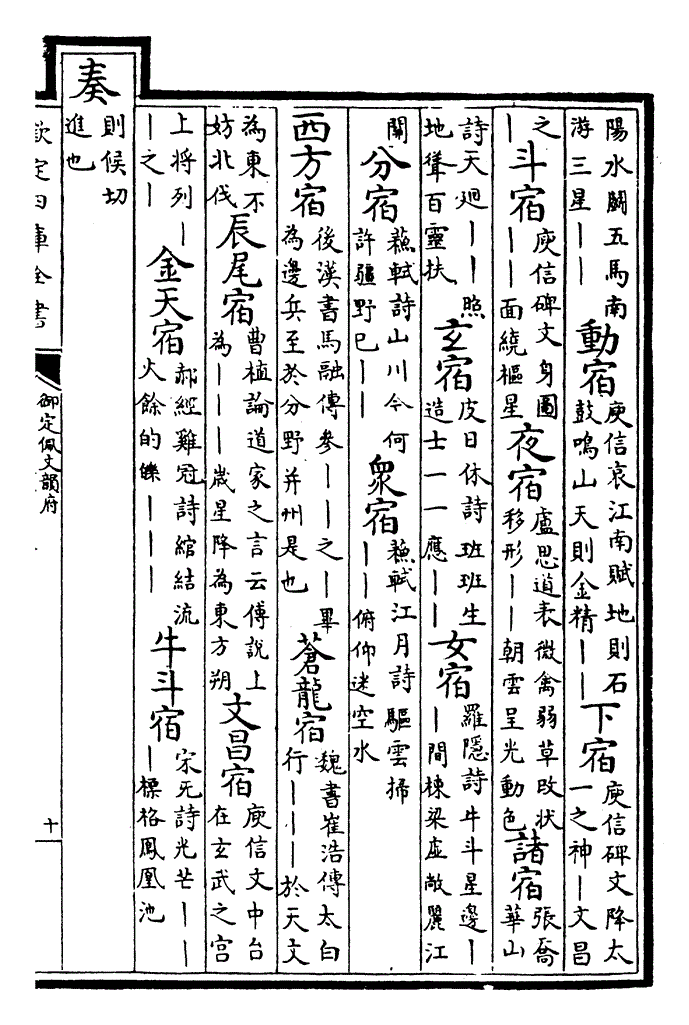 陽水鬭五馬南游三星｜｜動宿庾信哀江南賦地則石鼓鳴山天則金精｜｜下宿庾信碑文降太一之神｜文昌
之｜斗宿庾信碑文身圖｜｜面繞樞星夜宿盧思道表微禽弱草改狀移形｜｜朝雲呈光動色諸宿張喬華山
詩天廻｜｜照地聳百靈扶玄宿皮日休詩班班生造士一一應｜｜女宿羅隱詩牛斗星邊｜｜間棟梁虛敞麗江
關分宿蘇軾詩山川今何許疆野已｜｜衆宿蘇軾江月詩驅雲掃｜｜俯仰迷空水
西方宿後漢書馬融傳參｜｜之｜畢為邊兵至於分野并州是也蒼龍宿魏書崔浩傳太白行｜｜｜於天文
為東不妨北伐辰尾宿曹植論道家之言云傅說上為｜｜｜歲星降為東方朔文昌宿庾信文中台在玄武之宫
上将列｜｜之｜金天宿郝經雞冠詩綰結流火餘的皪｜｜｜牛斗宿宋无詩光芒｜｜｜標格鳳凰池
奏則候切進也
欽定四庫全書
御定佩文韻府
十